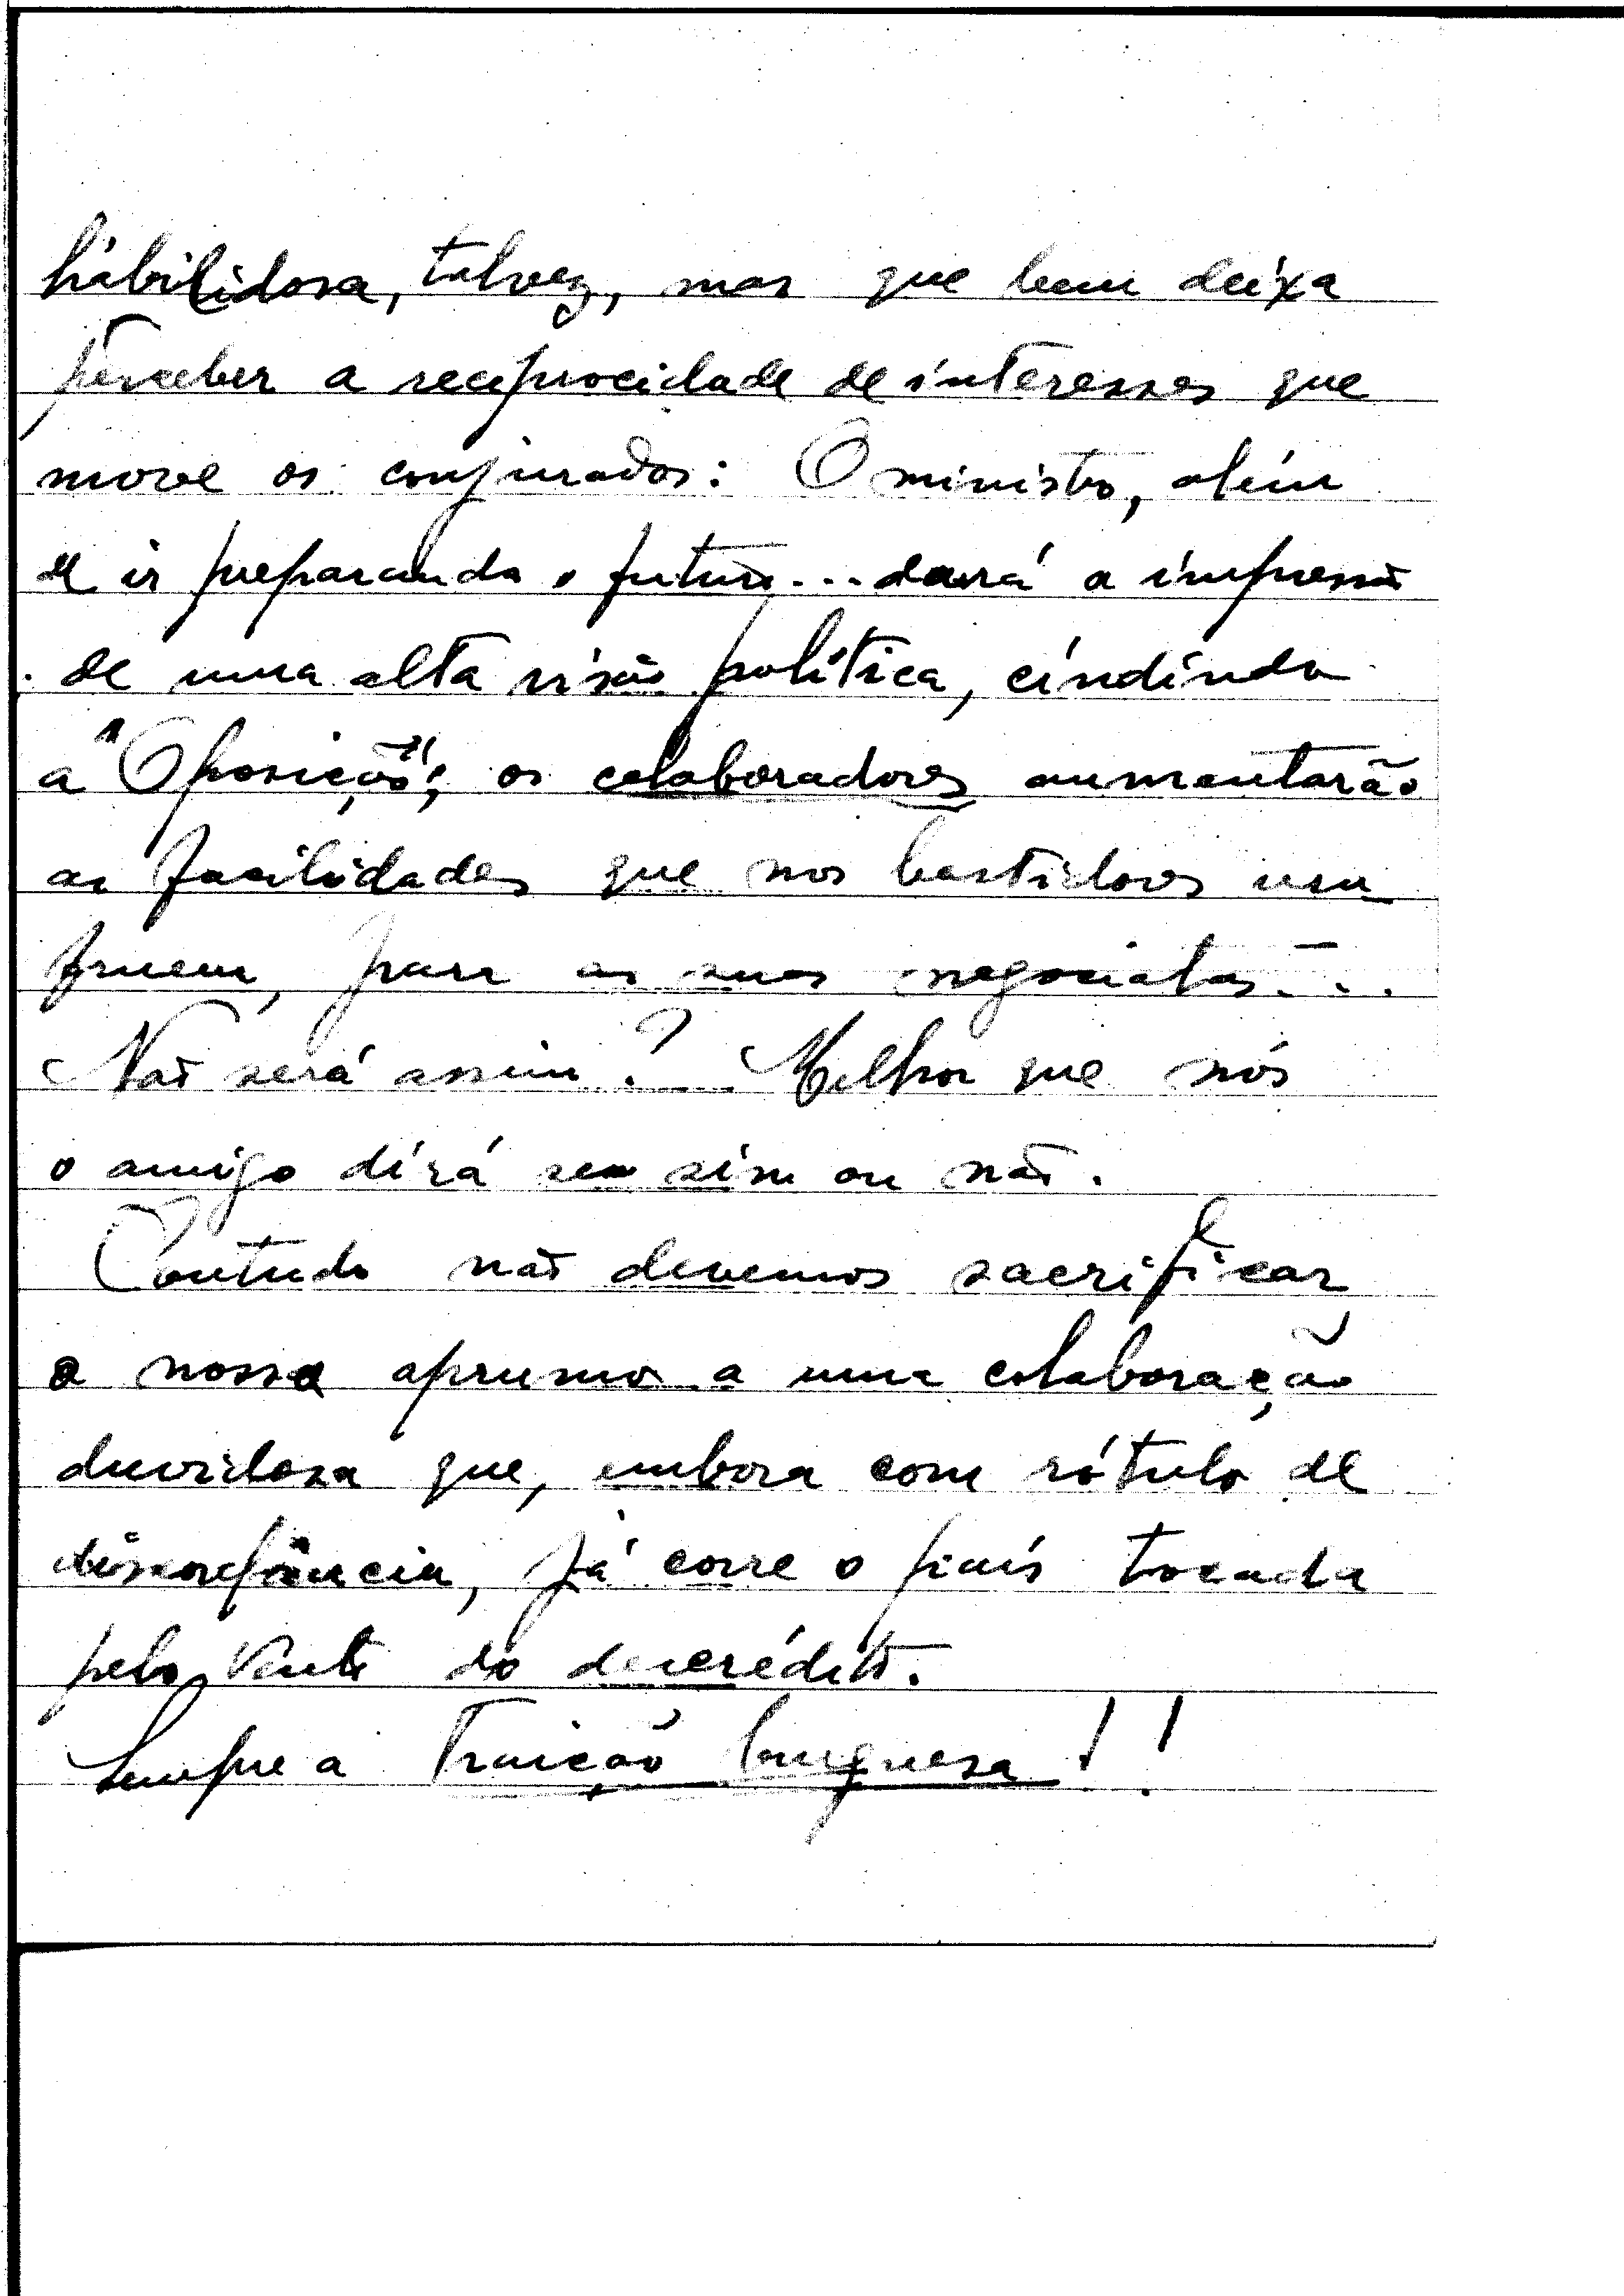 habilidosa, talvez, mas que bem deixa
perceber a reciprocidade de interesses que
move os conjurados: O ministro, além
de ir preparando o futuro... dará a impressão
de uma alta visão política, cindindo
a "Oposição"; os colaboradores aumentarão
as facilidades que nos bastidores usu
fruem, para as suas negociatas...
Não será assim? Melhor que nós
o amigo dirá se sim ou não.
Contudo não devemos sacrificar
o nosso aprumo a uma colaboração
duvidosa que, embora com rótulo de
discordância, já corre o país tocada
pelo vento do descrédito.
Sempre a Traição burguesa!!